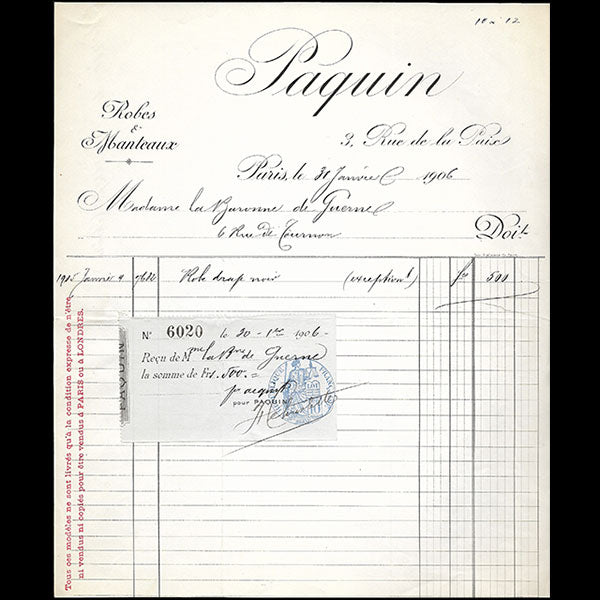 10 a 12
Paquin
Robes
&
Manteaux
3, Rue de la Paix
Paris, le 31 Janvier 1906
Madame la Baronne de Guerne
6 Rue de Tournon
Doit
1905 Janvier 9 Robe drap noir (exceptionl) fcs 500
PAQUIN
N° 6020 le 20 - 1906 -
Reçu de Mme la Bne de Guerne
la somme de Frs. 500. =
pr acquit
pour PAQUIN
10
Tous ces modèles ne sont livrés qu'à la condition expresse de n'être,
ni vendus ni copiés pour être vendus à PARIS ou à LONDRES.